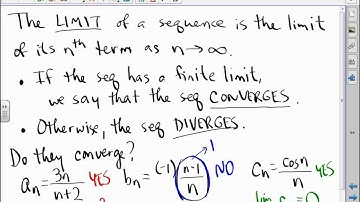 The LIMIT of a sequence is the limit
of its nth term as n→∞.
• If the seq has a finite limit,
we say that the seq CONVERGES.
• Otherwise, the seq DIVERGES.
Do they converge?
1
aₙ = 3n/(n+2) YES bₙ = (-1)ⁿ (n-1)/n NO cₙ = cos n/n YES
lim cₙ = 0